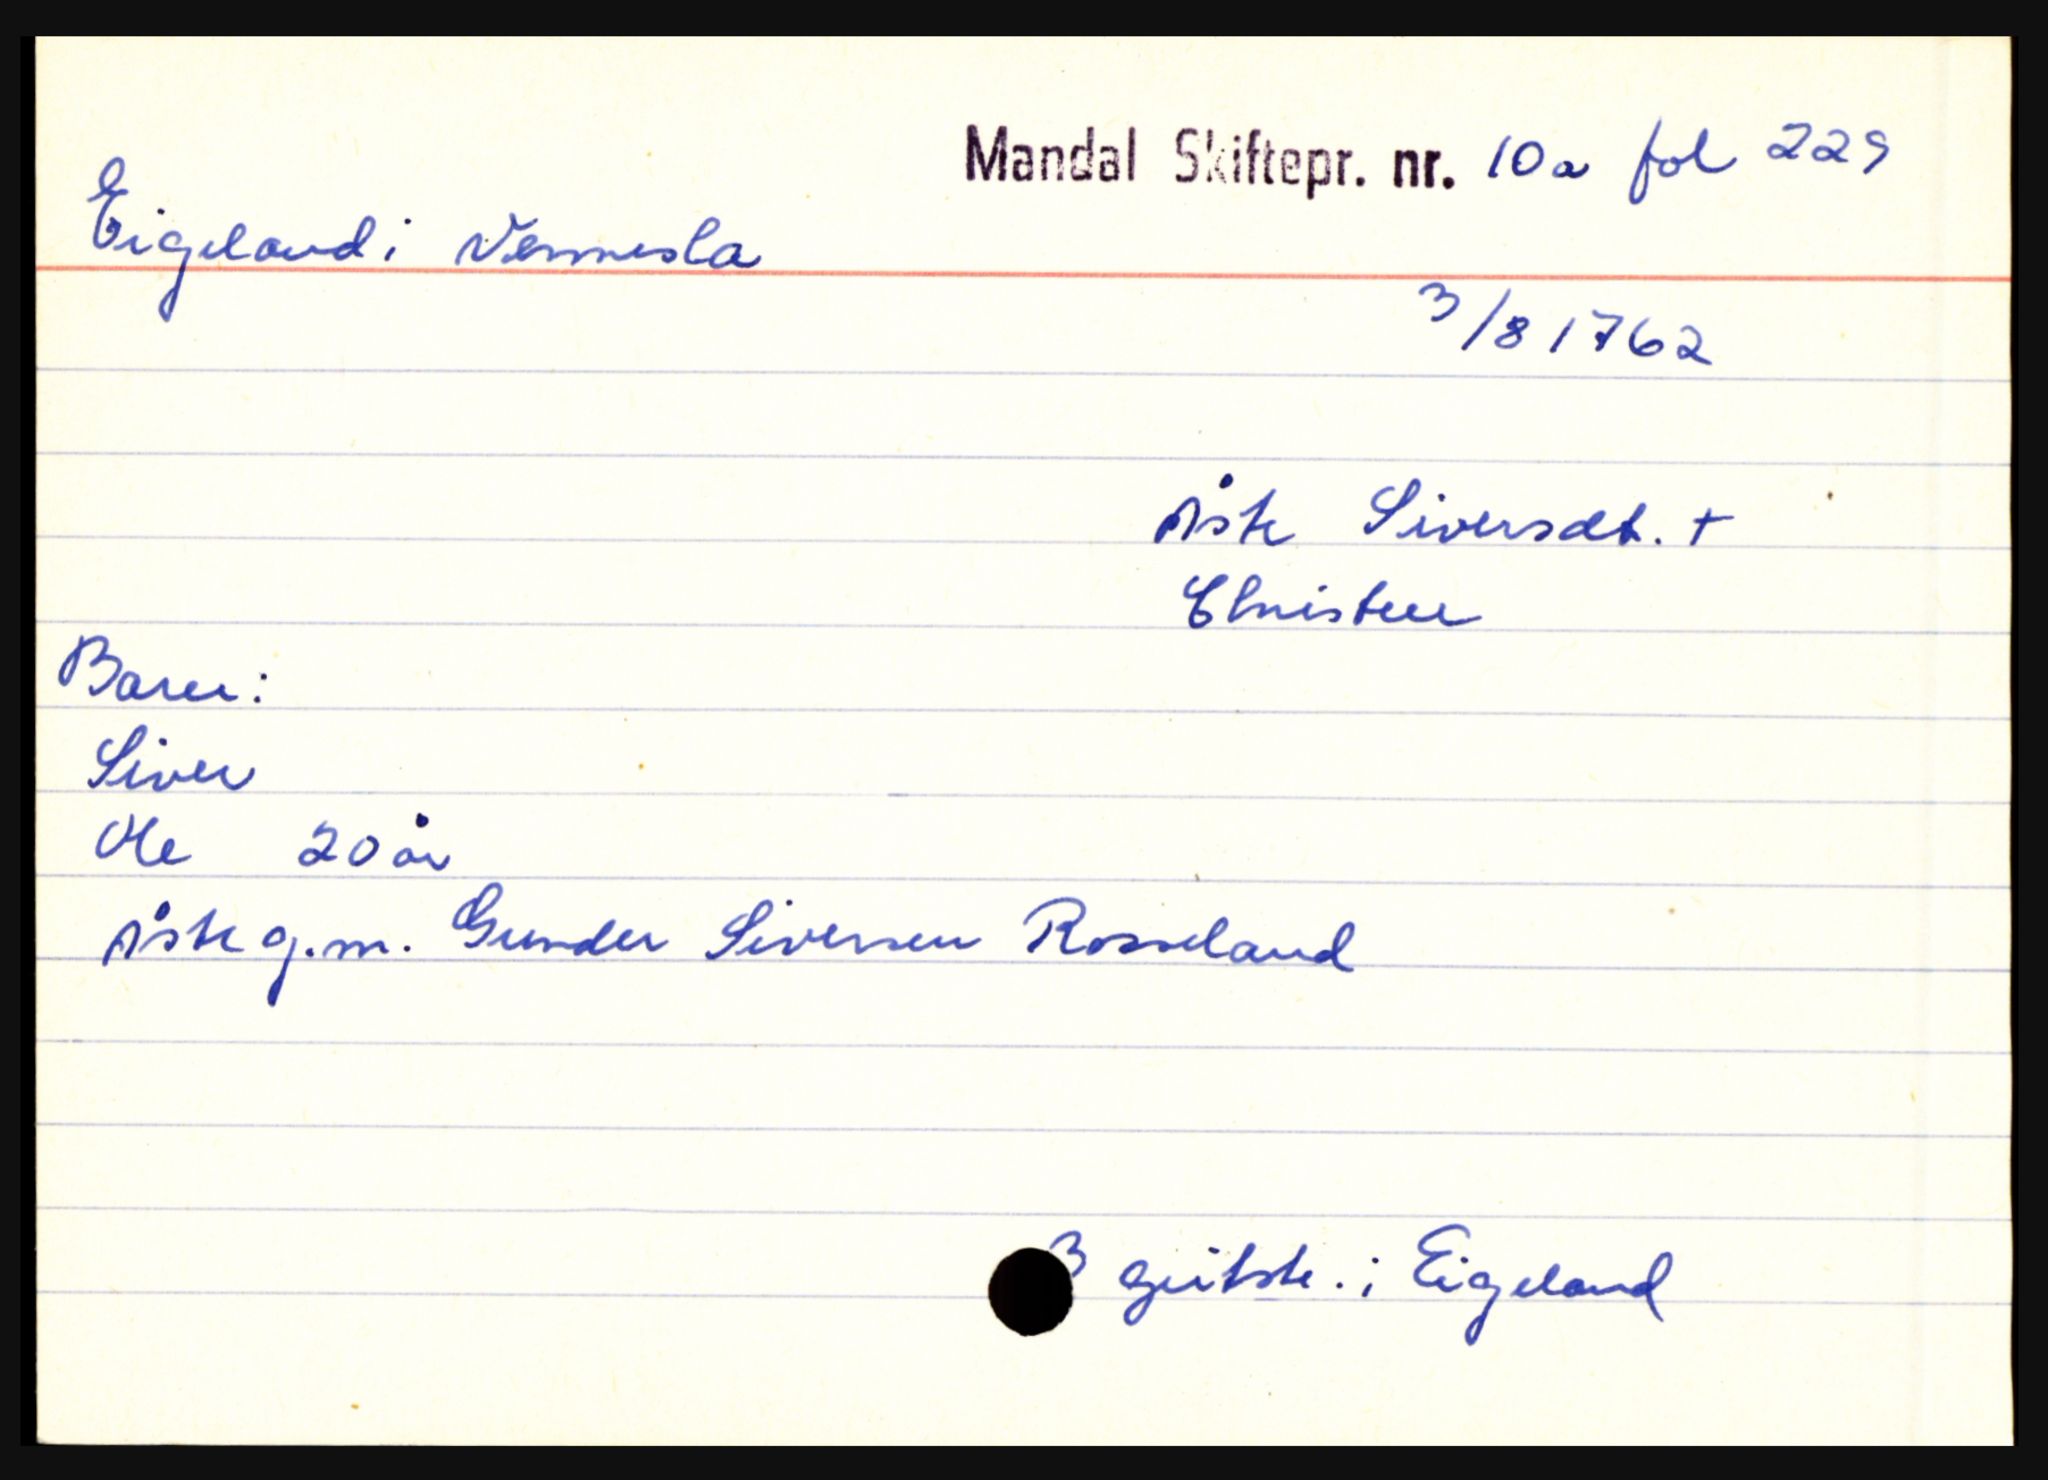 Mandal Skiftepr. nr. 10a fol 229
Eigeland i Vennesla
3/8 1762
Åste Siversdt. +
Christen
Barn:
Siver
Ole 20 år
Åste g.m. Gunder Siversen Rosseland
3 geitsk. i Eigeland